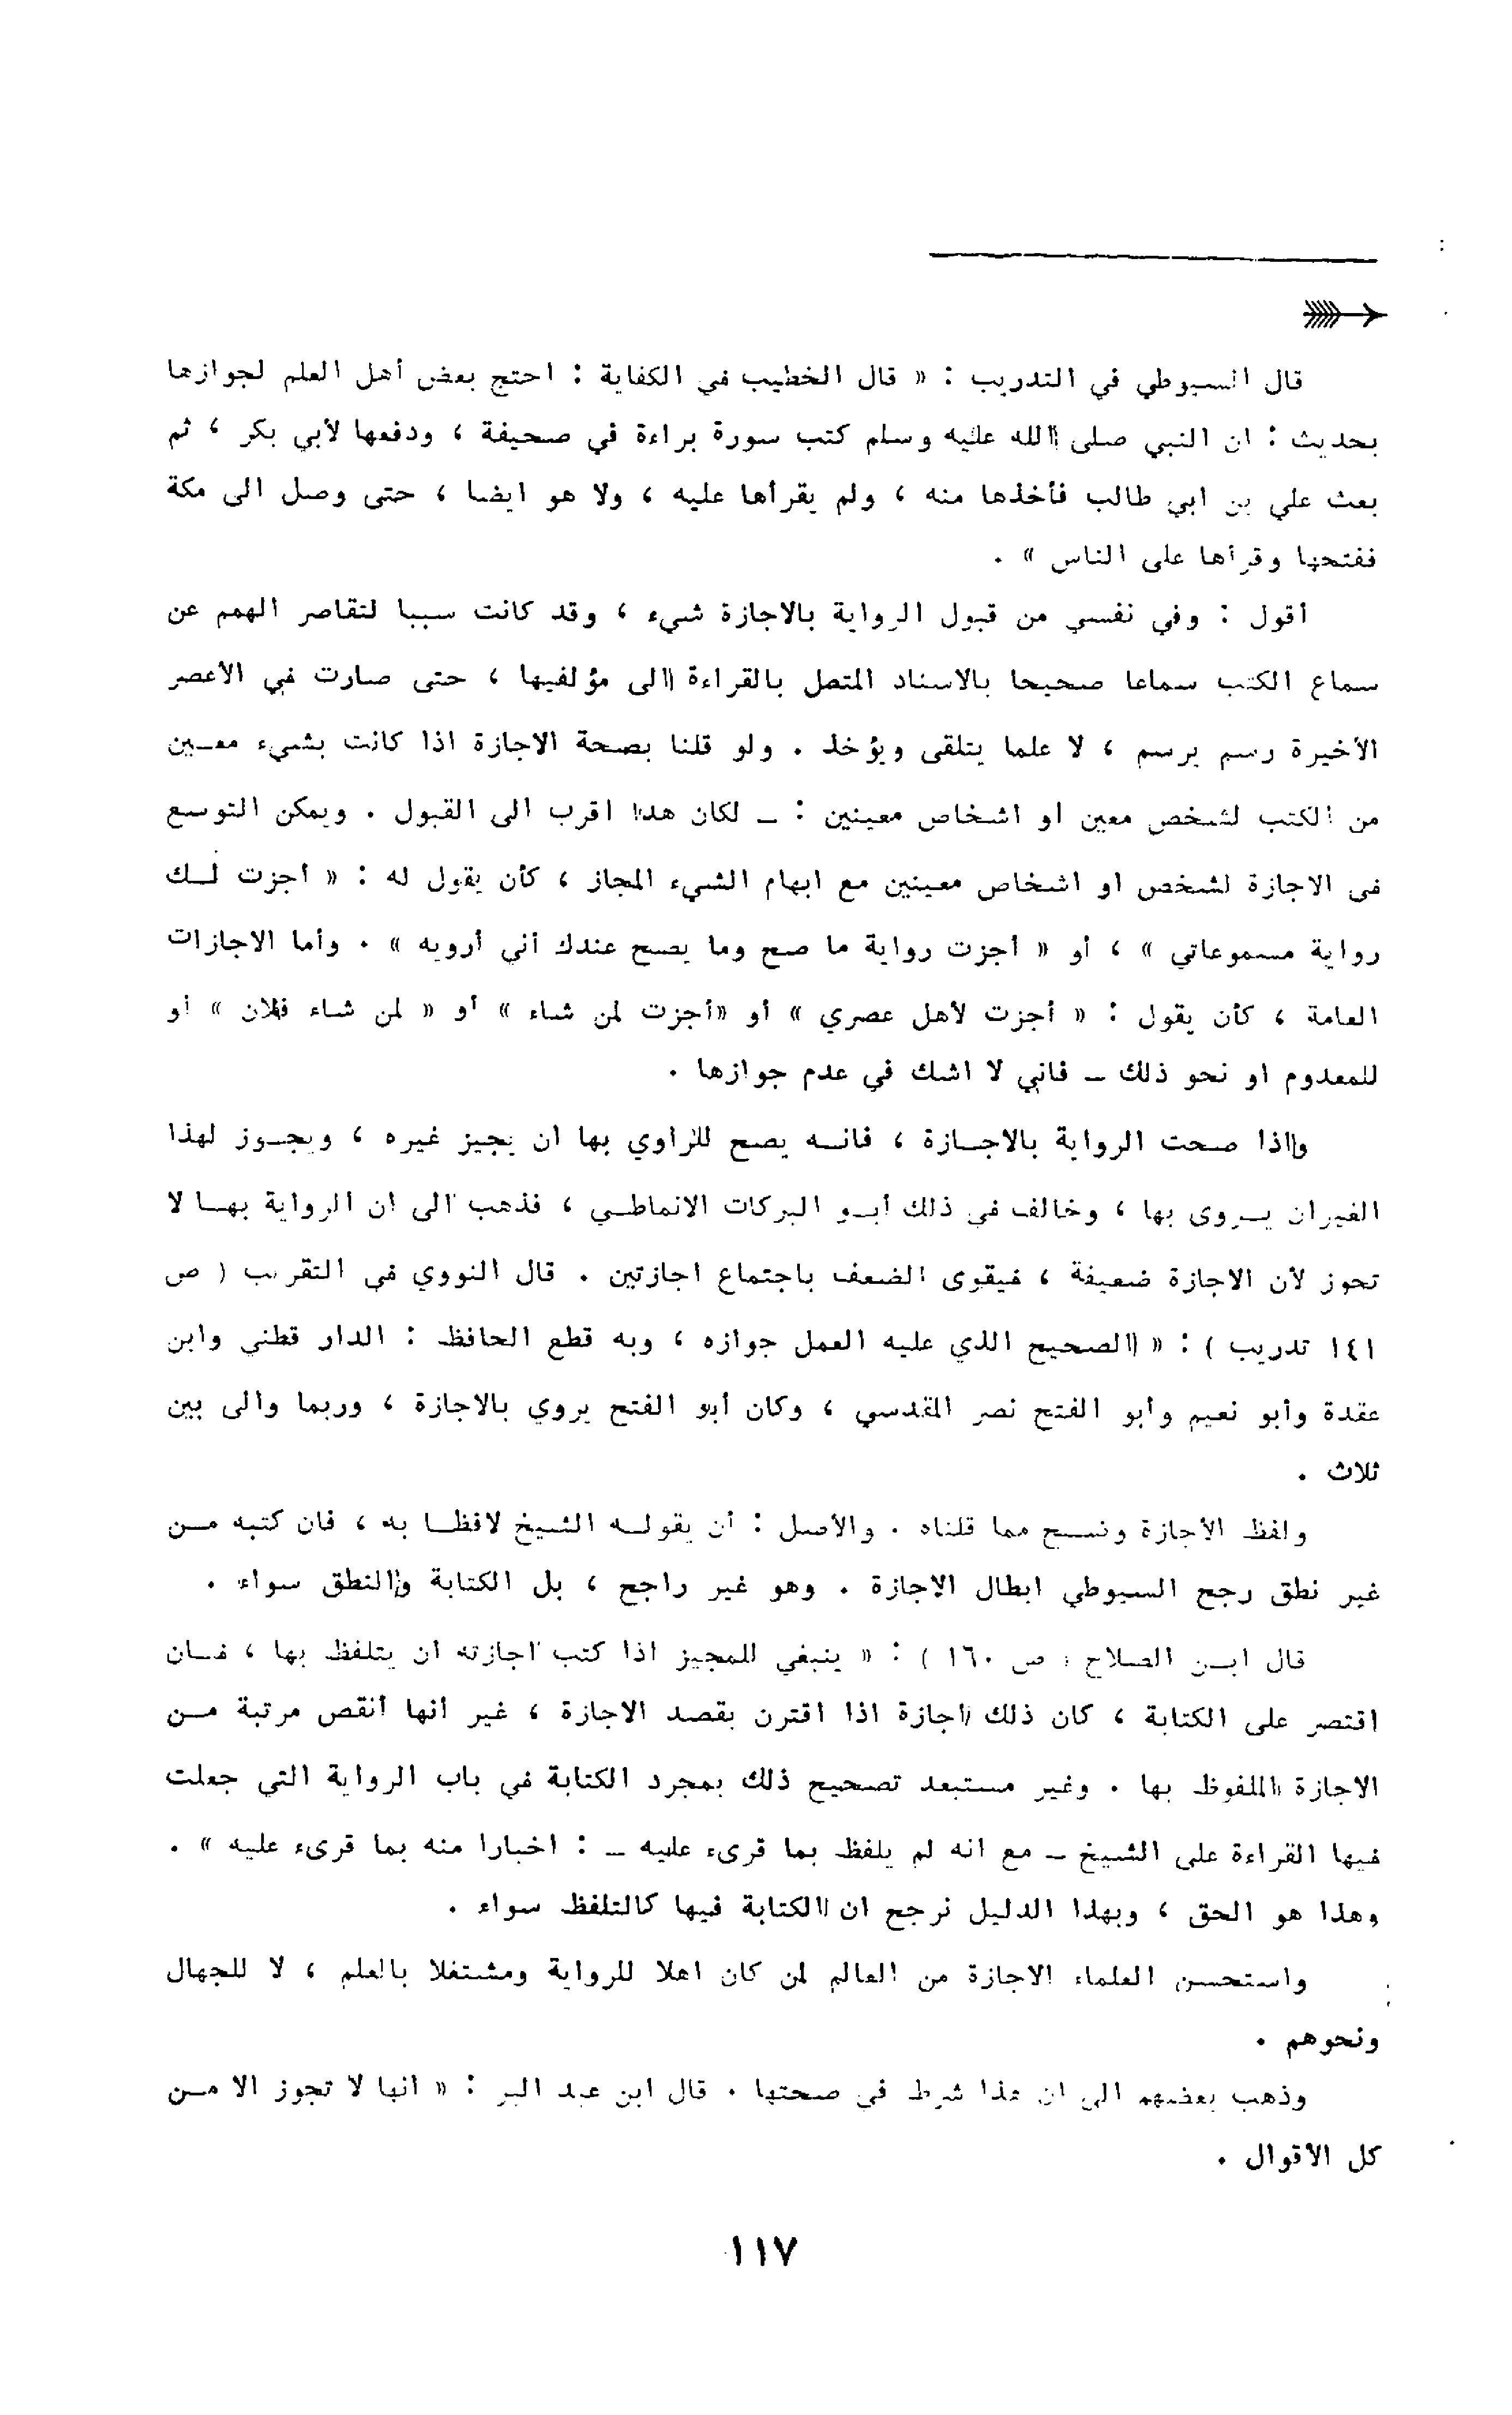 قال السيوطي في التدريب : « قال الخطيب في الكفاية : احتج بعض أهل العلم لجوازها
بحديث : ان النبي صلى الله عليه وسلم كتب سورة براءة في صحيفة ، ودفعها لأبي بكر ، ثم
بعث علي بن ابي طالب فأخذها منه ، ولم يقرأها عليه ، ولا هو ايضا ، حتى وصل الى مكة
ففتحها وقرأها على الناس » .
أقول : وفي نفسي من قبول الرواية بالاجازة شيء ، وقد كانت سببا لتقاصر الهمم عن
سماع الكتب سماعا صحيحا بالاسناد المتصل بالقراءة الى مؤلفيها ، حتى صارت في الأعصر
الأخيرة رسم يرسم ، لا علما يتلقى ويؤخذ . ولو قلنا بصحة الاجازة اذا كانت بشيء معين
من الكتب لشخص معين او اشخاص معينين : ـ لكان هذا اقرب الى القبول . ويمكن التوسع
في الاجازة لشخص او اشخاص معينين مع ابهام الشيء المجاز ، كأن يقول له : « أجزت لك
رواية مسموعاتي » ، أو « أجزت رواية ما صح وما يصح عندك أني أرويه » . وأما الاجازات
العامة ، كأن يقول : « أجزت لأهل عصري » أو «أجزت لمن شاء » أو « لمن شاء فلان » أو
للمعدوم او نحو ذلك ـ فاني لا اشك في عدم جوازها .
واذا صحت الرواية بالاجازة ، فانه يصح للراوي بها ان يجيز غيره ، ويجوز لهذا
الغير ان يروى بها ، وخالف في ذلك أبو البركات الانماطي ، فذهب الى ان الرواية بها لا
تجوز لأن الاجازة ضعيفة ، فيقوى الضعف باجتماع اجازتين . قال النووي في التقريب ( ص
١٤١ تدريب ) : « الصحيح الذي عليه العمل جوازه ، وبه قطع الحافظ : الدار قطني وابن
عقدة وأبو نعيم وأبو الفتح نصر المقدسي ، وكان أبو الفتح يروي بالاجازة ، وربما والى بين
ثلاث .
ولفظ الأجازة ونسح مما قلناه . والأصل : أن يقوله الشيخ لافظا به ، فان كتبه من
غير نطق رجح السيوطي ابطال الإجازة . وهو غير راجح ، بل الكتابة والنطق سواء .
قال ابن الصلاح ( ص ١٦٠ ) : « ينبغي للمجيز اذا كتب اجازته ان يتلفظ بها ، فان
اقتصر على الكتابة ، كان ذلك اجازة اذا اقترن بقصد الاجازة ، غير انها أنقص مرتبة من
الاجازة الملفوظ بها . وغير مستبعد تصحيح ذلك بمجرد الكتابة في باب الرواية التي جعلت
فيها القراءة على الشيخ ـ مع انه لم يلفظ بما قرىء عليه ـ : اخبارا منه بما قرىء عليه » .
وهذا هو الحق ، وبهذا الدليل نرجح ان الكتابة فيها كالتلفظ سواء .
واستحسن العلماء الاجازة من العالم لمن كان اهلا للرواية ومشتغلا بالعلم ، لا للجهال
ونحوهم .
وذهب بعضهم الى ان هذا شرط في صحتها . قال ابن عبد البر : « انها لا تجوز الا من
كل الاقوال .
١١٧